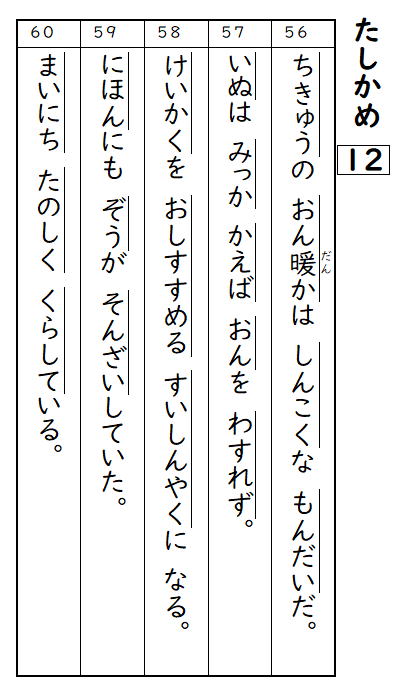 たしかめ 12
56
ちきゅうの おん暖かは しんこくな もんだいだ。
だん
57
いぬは みっか かえば おんを わすれず。
58
けいかくを おしすすめる すいしんやくに なる。
59
にほんにも ぞうが そんざいしていた。
60
まいにち たのしく くらしている。